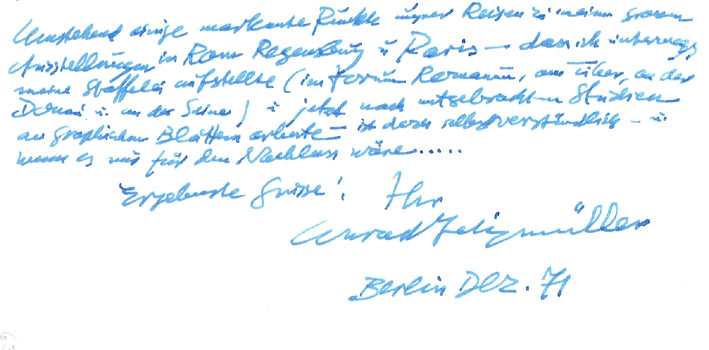 Umstehend einige markante Punkte unsrer Reisen zu meinen grossen
Ausstellungen in Rom Regensburg u Paris – dass ich unterwegs
meine Staffelei aufstellte (im Forum Romanum, am Tiber, an der
Donau u. an der Seine) u jetzt nach mitgebrachten Studien
an graphischen Blättern arbeite – ist doch selbstverständlich – u
wenn es nur für den Nachlass wäre.....
Ergebenste Grüsse! Ihr
Conrad Felixmüller
Berlin Dez. 71